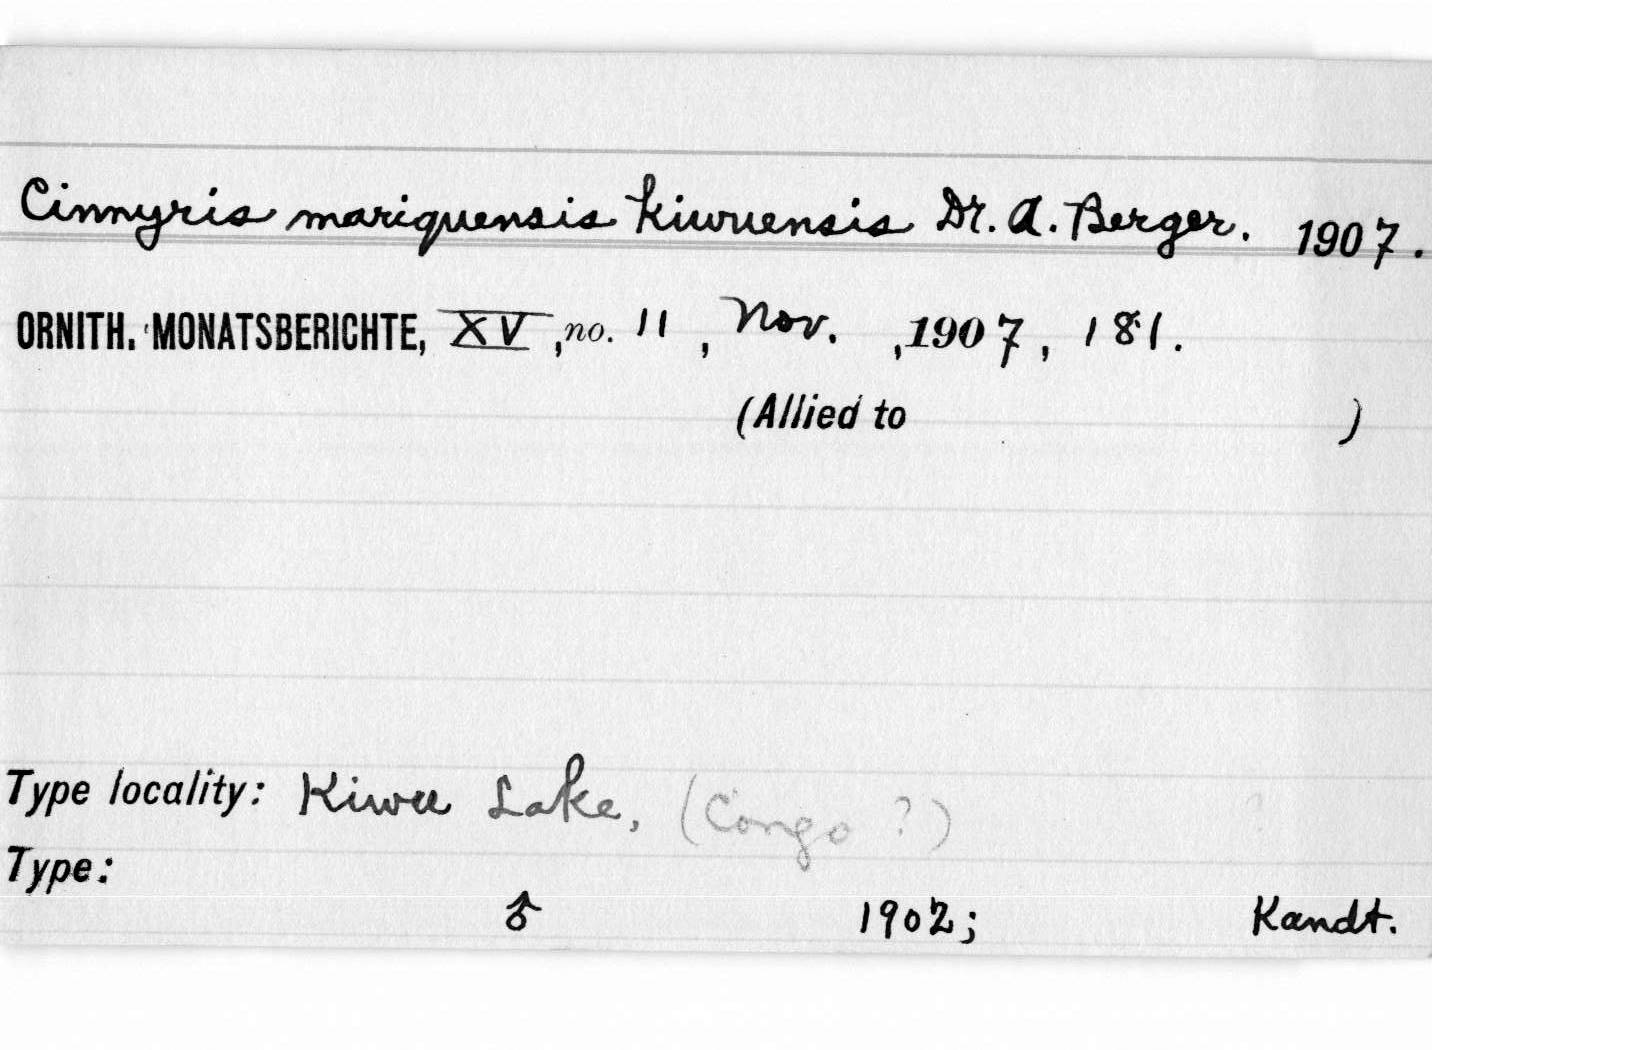 Cinnyris mariquensis kiwuensis Dr. A. Berger. 1907.
ORNITH. MONATSBERICHTE, XV, no. 11, Nov., 1907, 181.
(Allied to )
Type locality: Kiwu Lake, (Congo ?)
Type:
♂ 1902; Kandt.